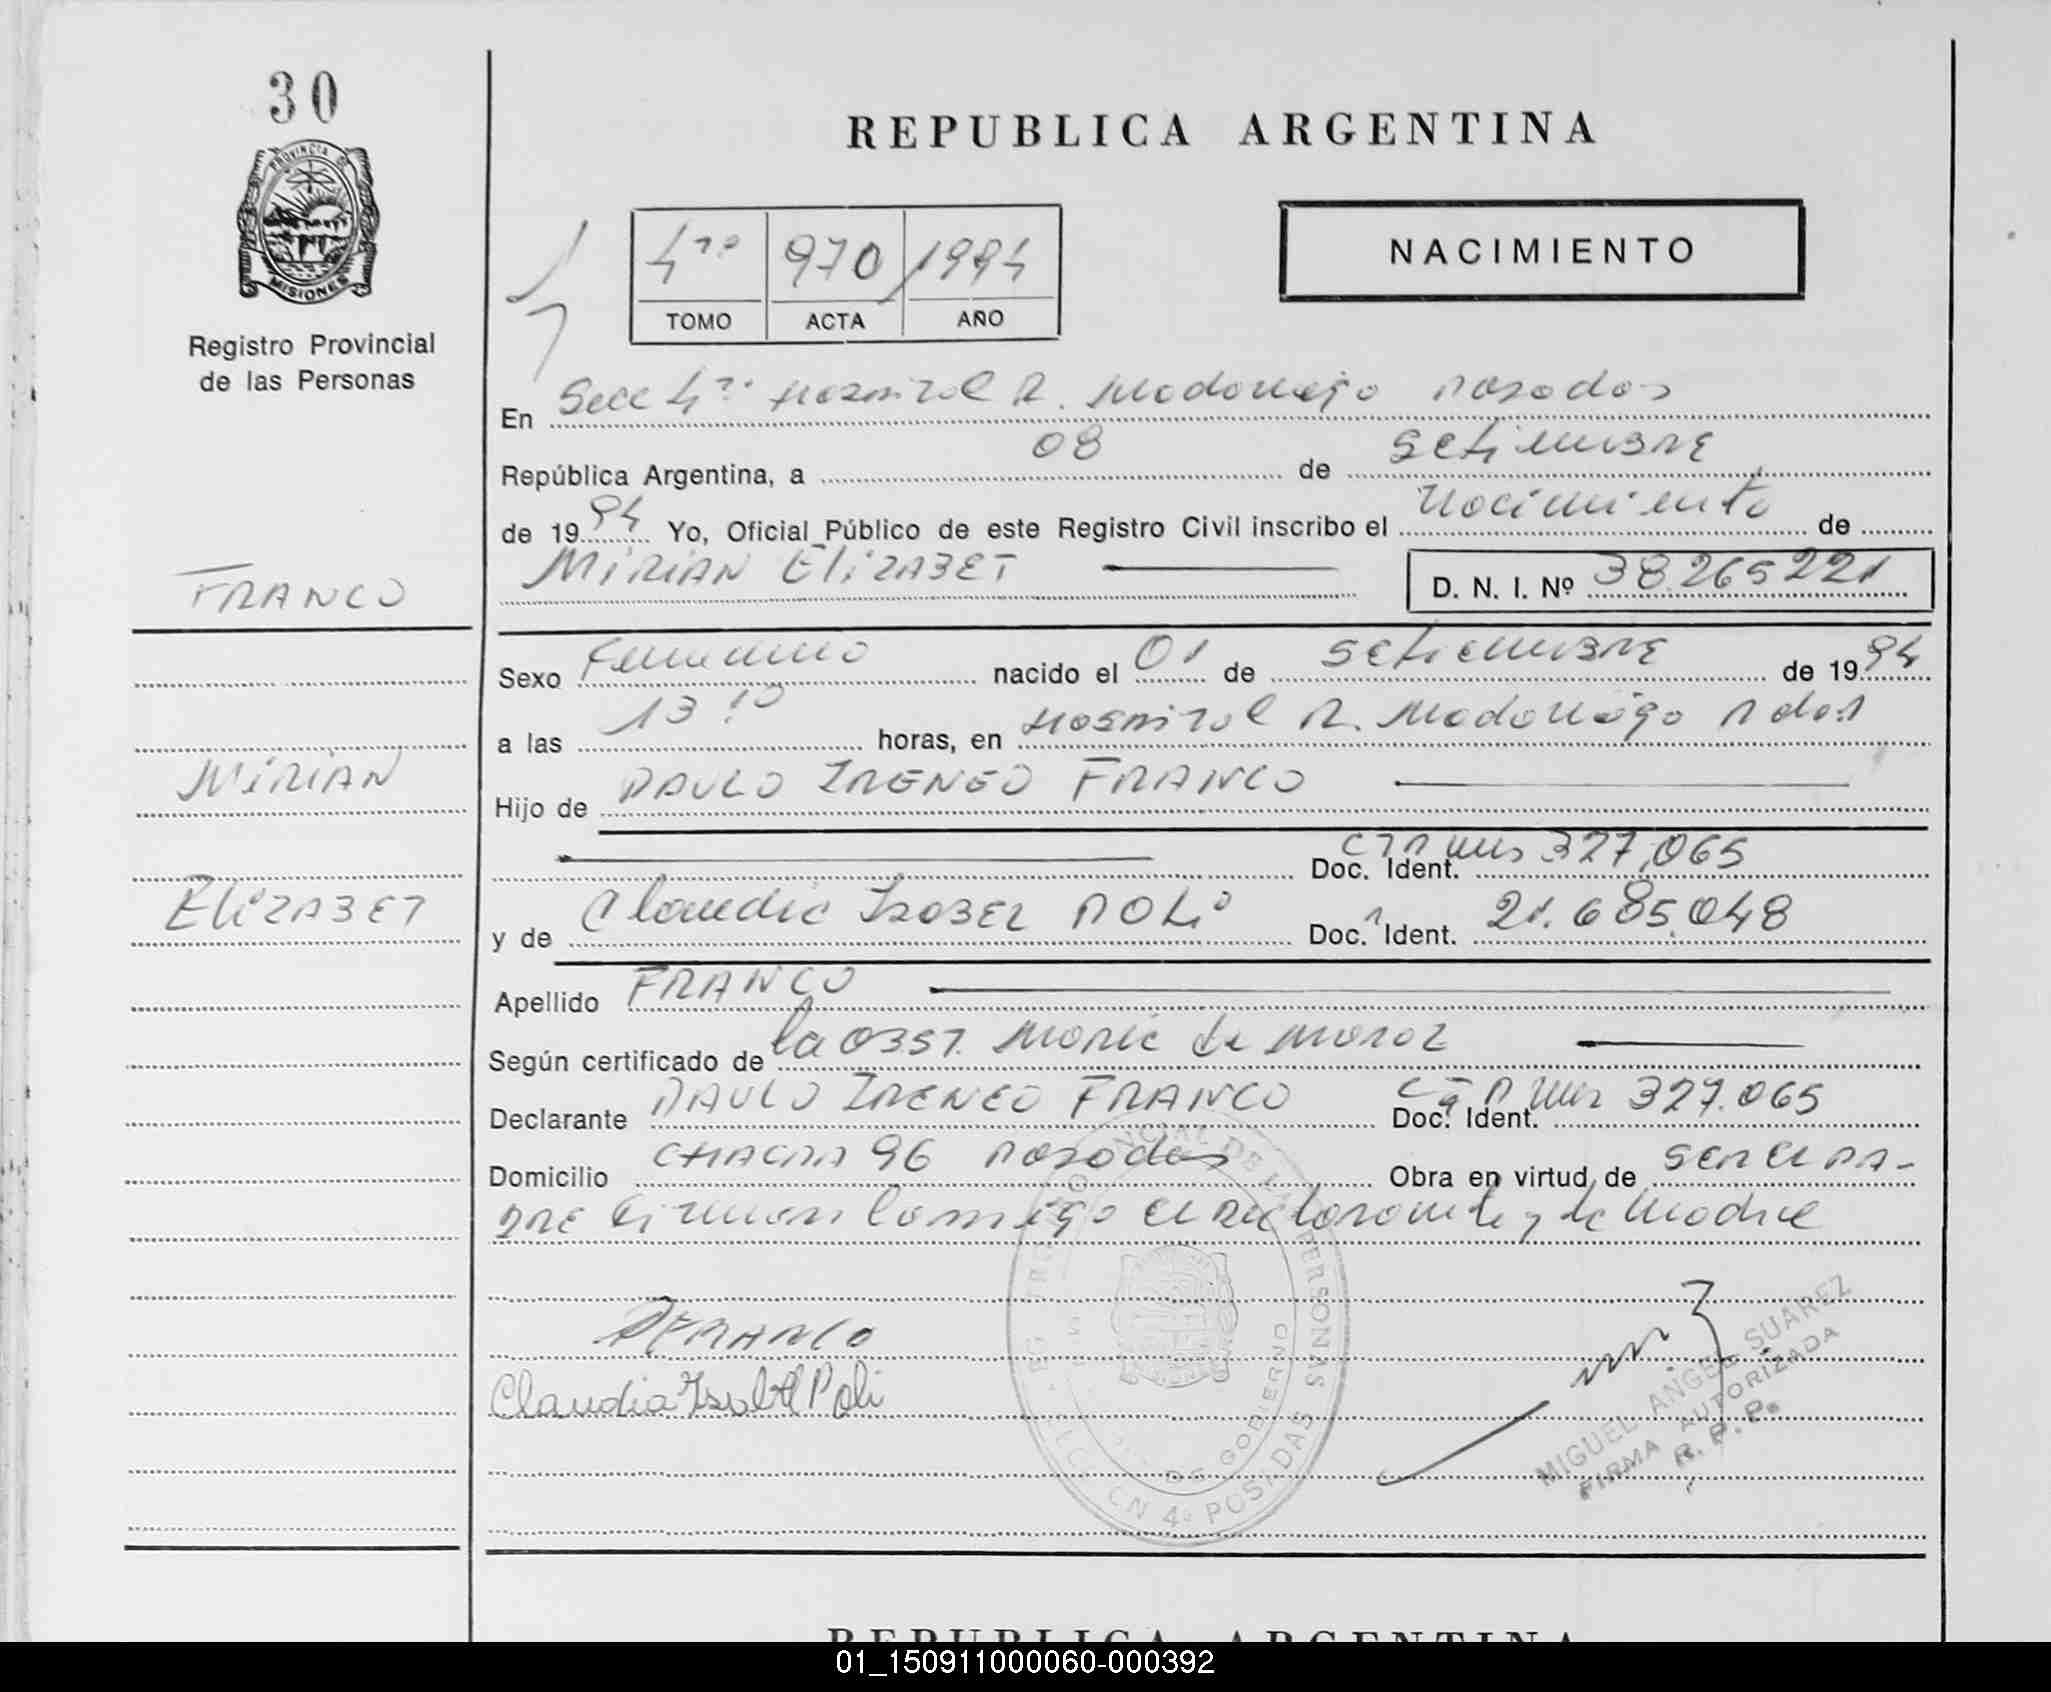 30
PROVINCIA DE
MISIONES
Registro Provincial
de las Personas
REPUBLICA ARGENTINA
NACIMIENTO
4º 970 1994
TOMO ACTA AÑO
En Secc 4º Hospital R. Madariaga Posadas
República Argentina, a 08 de Setiembre
de 1994 Yo, Oficial Público de este Registro Civil inscribo el Nacimiento de
MIRIAN ELIZABET D. N. I. Nº 38.265221
FRANCO
Sexo Femenino nacido el 01 de Setiembre de 1994
a las 13 10 horas, en Hospital R. Madariaga Pdas
MIRIAN
Hijo de PAULO IRENEO FRANCO
Doc. Ident. 327,065
ELIZABET
y de Claudia ISABEL POLI Doc. Ident. 21.685.048
Apellido FRANCO
Según certificado de la OBST. Maria de
Declarante PAULO IRENEO FRANCO Doc. Ident. 327.065
Domicilio CHACRA 96 Posadas Obra en virtud de SER EL PA-
DRE Firman Conmigo El Declarante y la Madre
PFRANCO
Claudia Isabel Poli
DE LAS PERSONAS
DE GOBIERNO
4º POSADAS
MIGUEL ANGEL SUAREZ
FIRMA AUTORIZADA
R. P. P.
REPUBLICA ARGENTINA
01_150911000060-000392